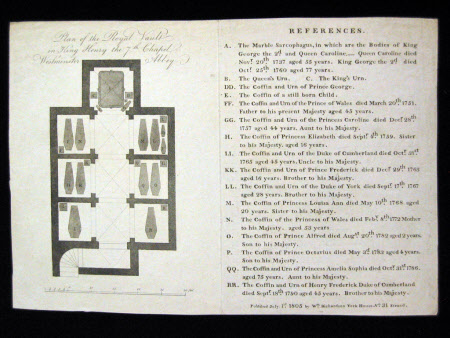 Plan of the Royal Vault
in King Henry the 7th Chapel
Westminster Abby
REFERENCES.
A. The Marble Sarcophagus, in which are the Bodies of King
George the 2d and Queen Caroline. Queen Caroline died
Novr. 20th 1737 aged 55 years. King George the 2d died
Octr. 25th 1760 aged 77 years.
B. The Queen's Urn. C. The King's Urn.
DD. The Coffin and Urn of Prince George.
E. The Coffin of a still born Child.
FF. The Coffin and Urn of the Prince of Wales died March 20th 1751.
Father to his present Majesty aged 45 years.
GG. The Coffin and Urn of the Princess Caroline died Decr. 28th
1757 aged 44 years. Aunt to his Majesty.
H. The Coffin of Princess Elizabeth died Septr. 4th 1759. Sister
to his Majesty, aged 18 years.
I.I. The Coffin and Urn of the Duke of Cumberland died Octr. 31st
1765 aged 45 years. Uncle to his Majesty.
KK. The Coffin and Urn of Prince Frederick died Decr. 29th 1765
aged 16 years. Brother to his Majesty.
LL. The Coffin and Urn of the Duke of York died Septr. 17th 1767
aged 28 years. Brother to his Majesty.
M. The Coffin of Princess Louisa Ann died May 10th 1768 aged
20 years. Sister to his Majesty.
N. The Coffin of the Princess of Wales died Febr. 8th 1772 Mother
to his Majesty. aged 53 years
O. The Coffin of Prince Alfred died Augst 20th 1782 aged 2 years.
Son to his Majesty.
P. The Coffin of Prince Octavius died May 3d 1783 aged 4 years
Son to his Majesty.
QQ. The Coffin and Urn of Princess Amelia Sophia died Octr. 31st 1786.
aged 75 years. Aunt to his Majesty.
RR. The Coffin and Urn of Henry Frederick Duke of Cumberland
died Septr. 18th 1790 aged 45 years. Brother to his Majesty.
Published July 1st 1803 by Wm. Richardson York House No. 31 Strand.